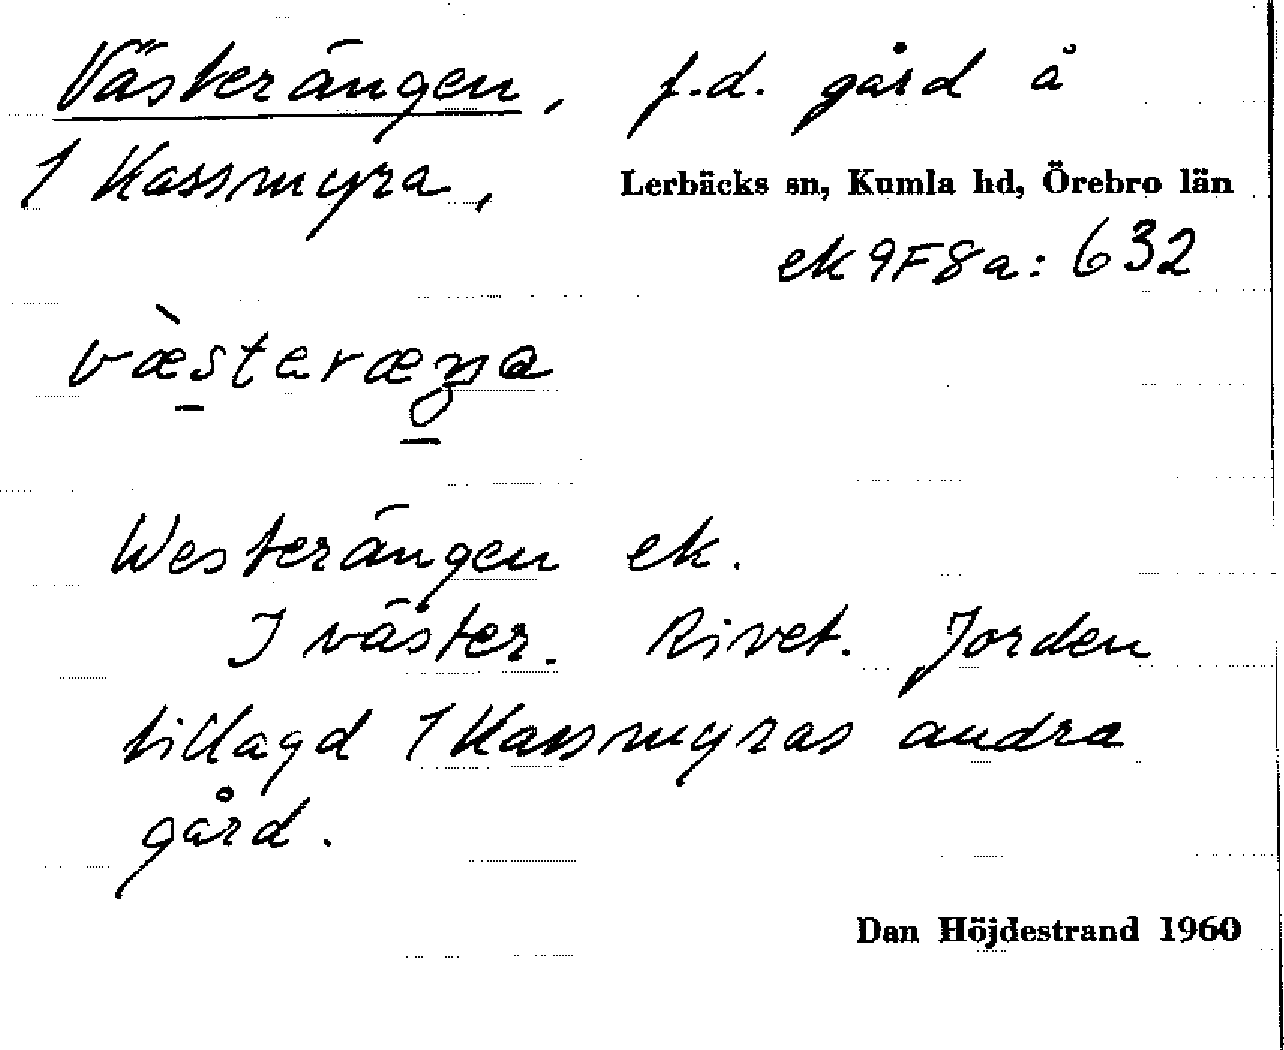 Västerängen, f.d. gård å
1 Kassmyra, Lerbäcks sn, Kumla hd, Örebro län
ek 9F8a: 632
væ̀staræŋa
Westerängen ek.
I väster. Rivet. Jorden
tillagd 1 Kassmyras andra
gård.
Dan Höjdestrand 1960